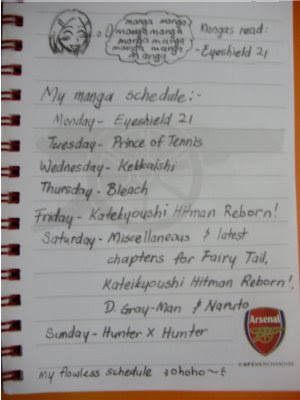 manga manga
manga manga
manga manga
manga manga
manga
Mangas read:
- Eyeshield 21
My manga schedule:-
Monday - Eyeshield 21
Tuesday - Prince of Tennis
Wednesday - Kekkaishi
Thursday - Bleach
Friday - Katekyoushi Hitman Reborn!
Saturday - Miscellaneous & latest
chapters for Fairy Tail,
Kateikyoushi Hitman Reborn!,
D. Gray-Man & Naruto
Arsenal
Sunday - Hunter X Hunter
©AFC MERCHANDISE
My flawless schedule :ohoho~: